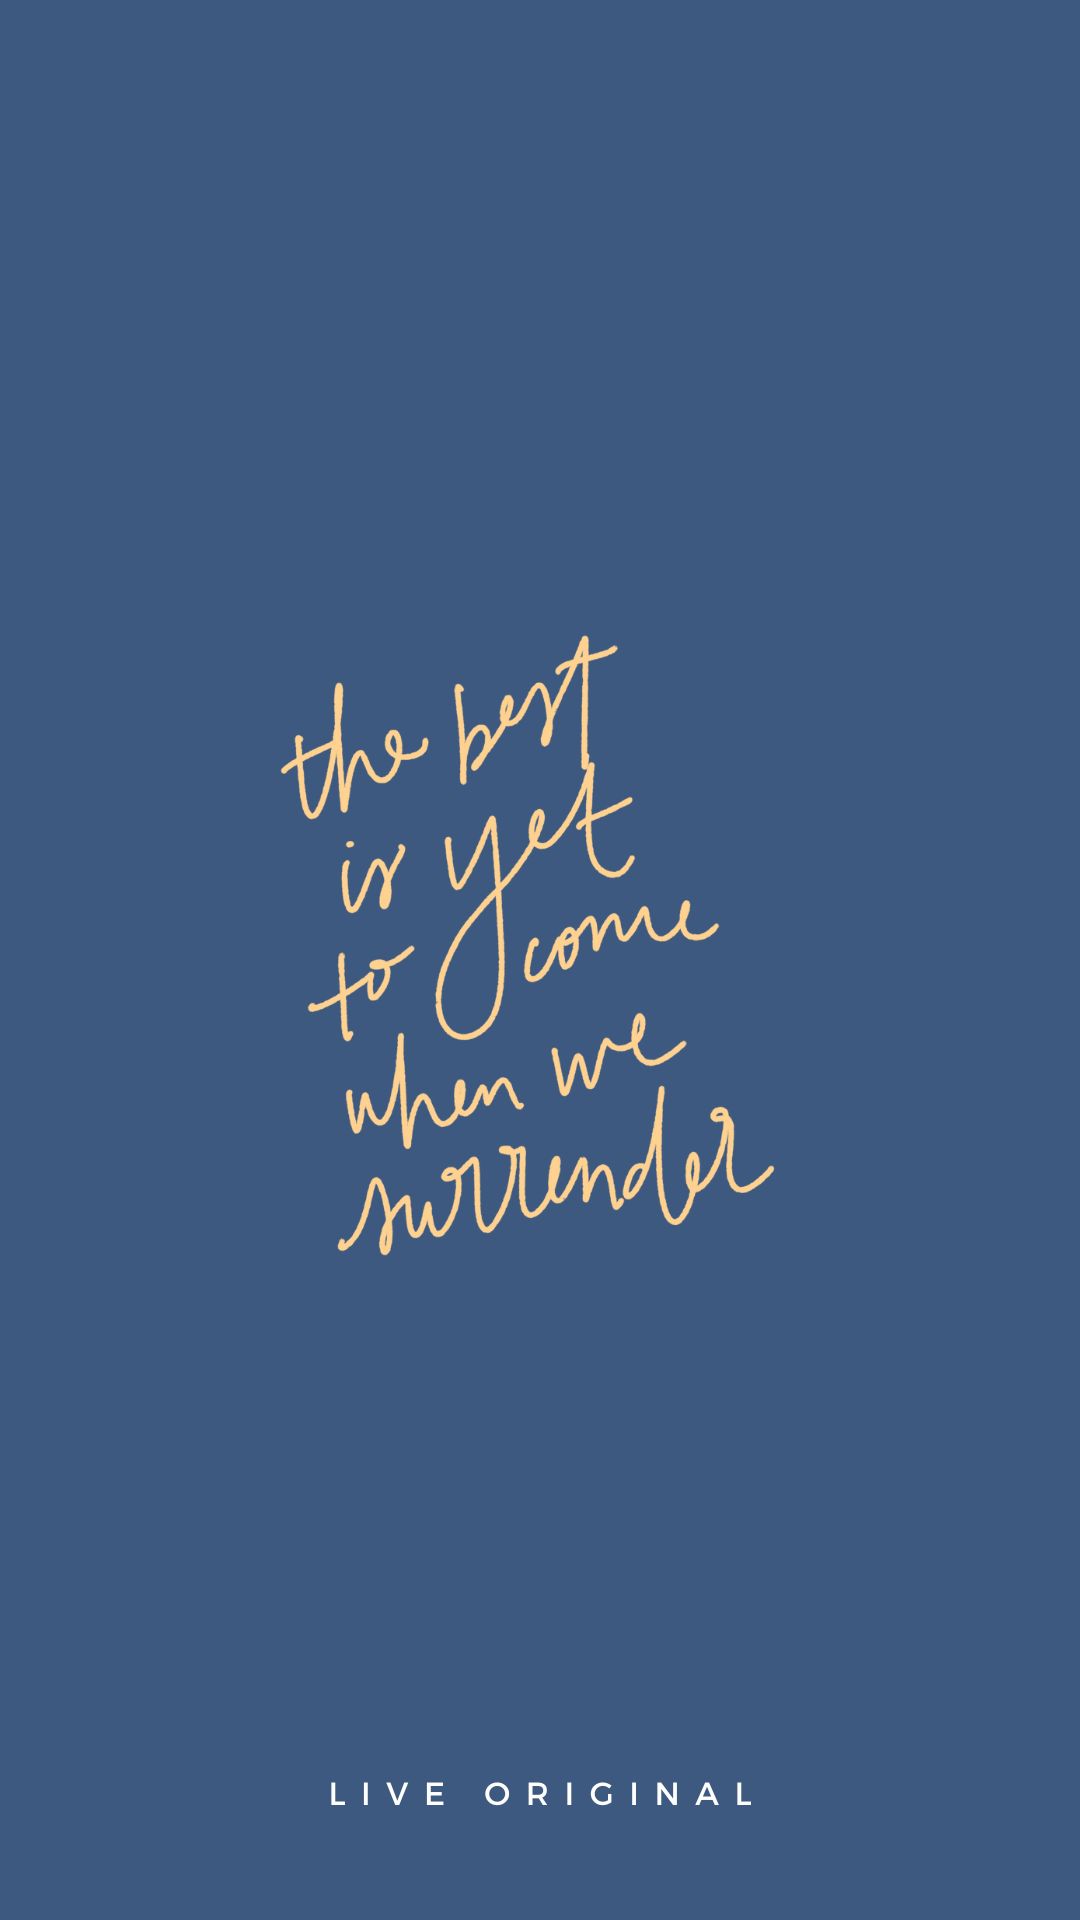 the best
is yet
to come
when we
surrender
LIVE ORIGINAL